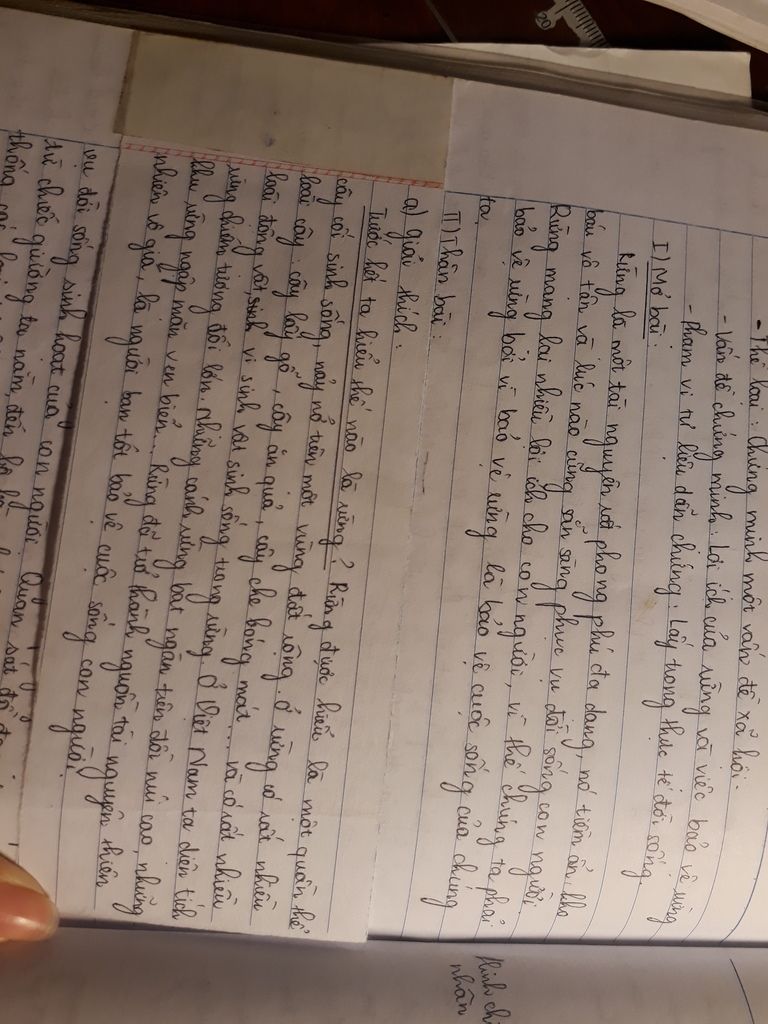 - Thể loại : Chứng minh một vấn đề xã hội.
- Vấn đề chứng minh : Lợi ích của rừng và việc bảo vệ rừng
- Phạm vi tư liệu dẫn chứng : Lấy trong thực tế đời sống.
I) Mở bài :
Rừng là một tài nguyên rất phong phú đa dạng, nó tiềm ẩn, kho
báu vô tận và lúc nào cũng sẵn sàng phục vụ đời sống con người.
Rừng mang lại nhiều lợi ích cho con người, vì thế chúng ta phải
bảo vệ rừng bởi vì bảo vệ rừng là bảo vệ cuộc sống của chúng
ta.
II) Thân bài :
a) Giải thích :
Trước hết ta hiểu thế nào là rừng ? Rừng được hiểu là một quần thể
cây cối sinh sống, nảy nở trên một vùng đất rộng. Ở rừng có rất nhiều
loài cây : cây lấy gỗ, cây ăn quả, cây che bóng mát ... và có rất nhiều
loài động vật, sinh vi sinh vật sinh sống trong rừng. Ở Việt Nam ta diện tích
rừng chiếm tương đối lớn. Những cánh rừng bạt ngàn trên đồi núi cao, những
khu rừng ngập mặn ven biển... Rừng đã trở thành nguồn tài nguyên thiên
nhiên vô giá, là người bạn tốt bảo vệ cuộc sống con người.
vụ đời sống sinh hoạt của con người. Quan sát đồ
từ chiếc giường ta nằm, đến
thống các loại
Hình ch
nhân